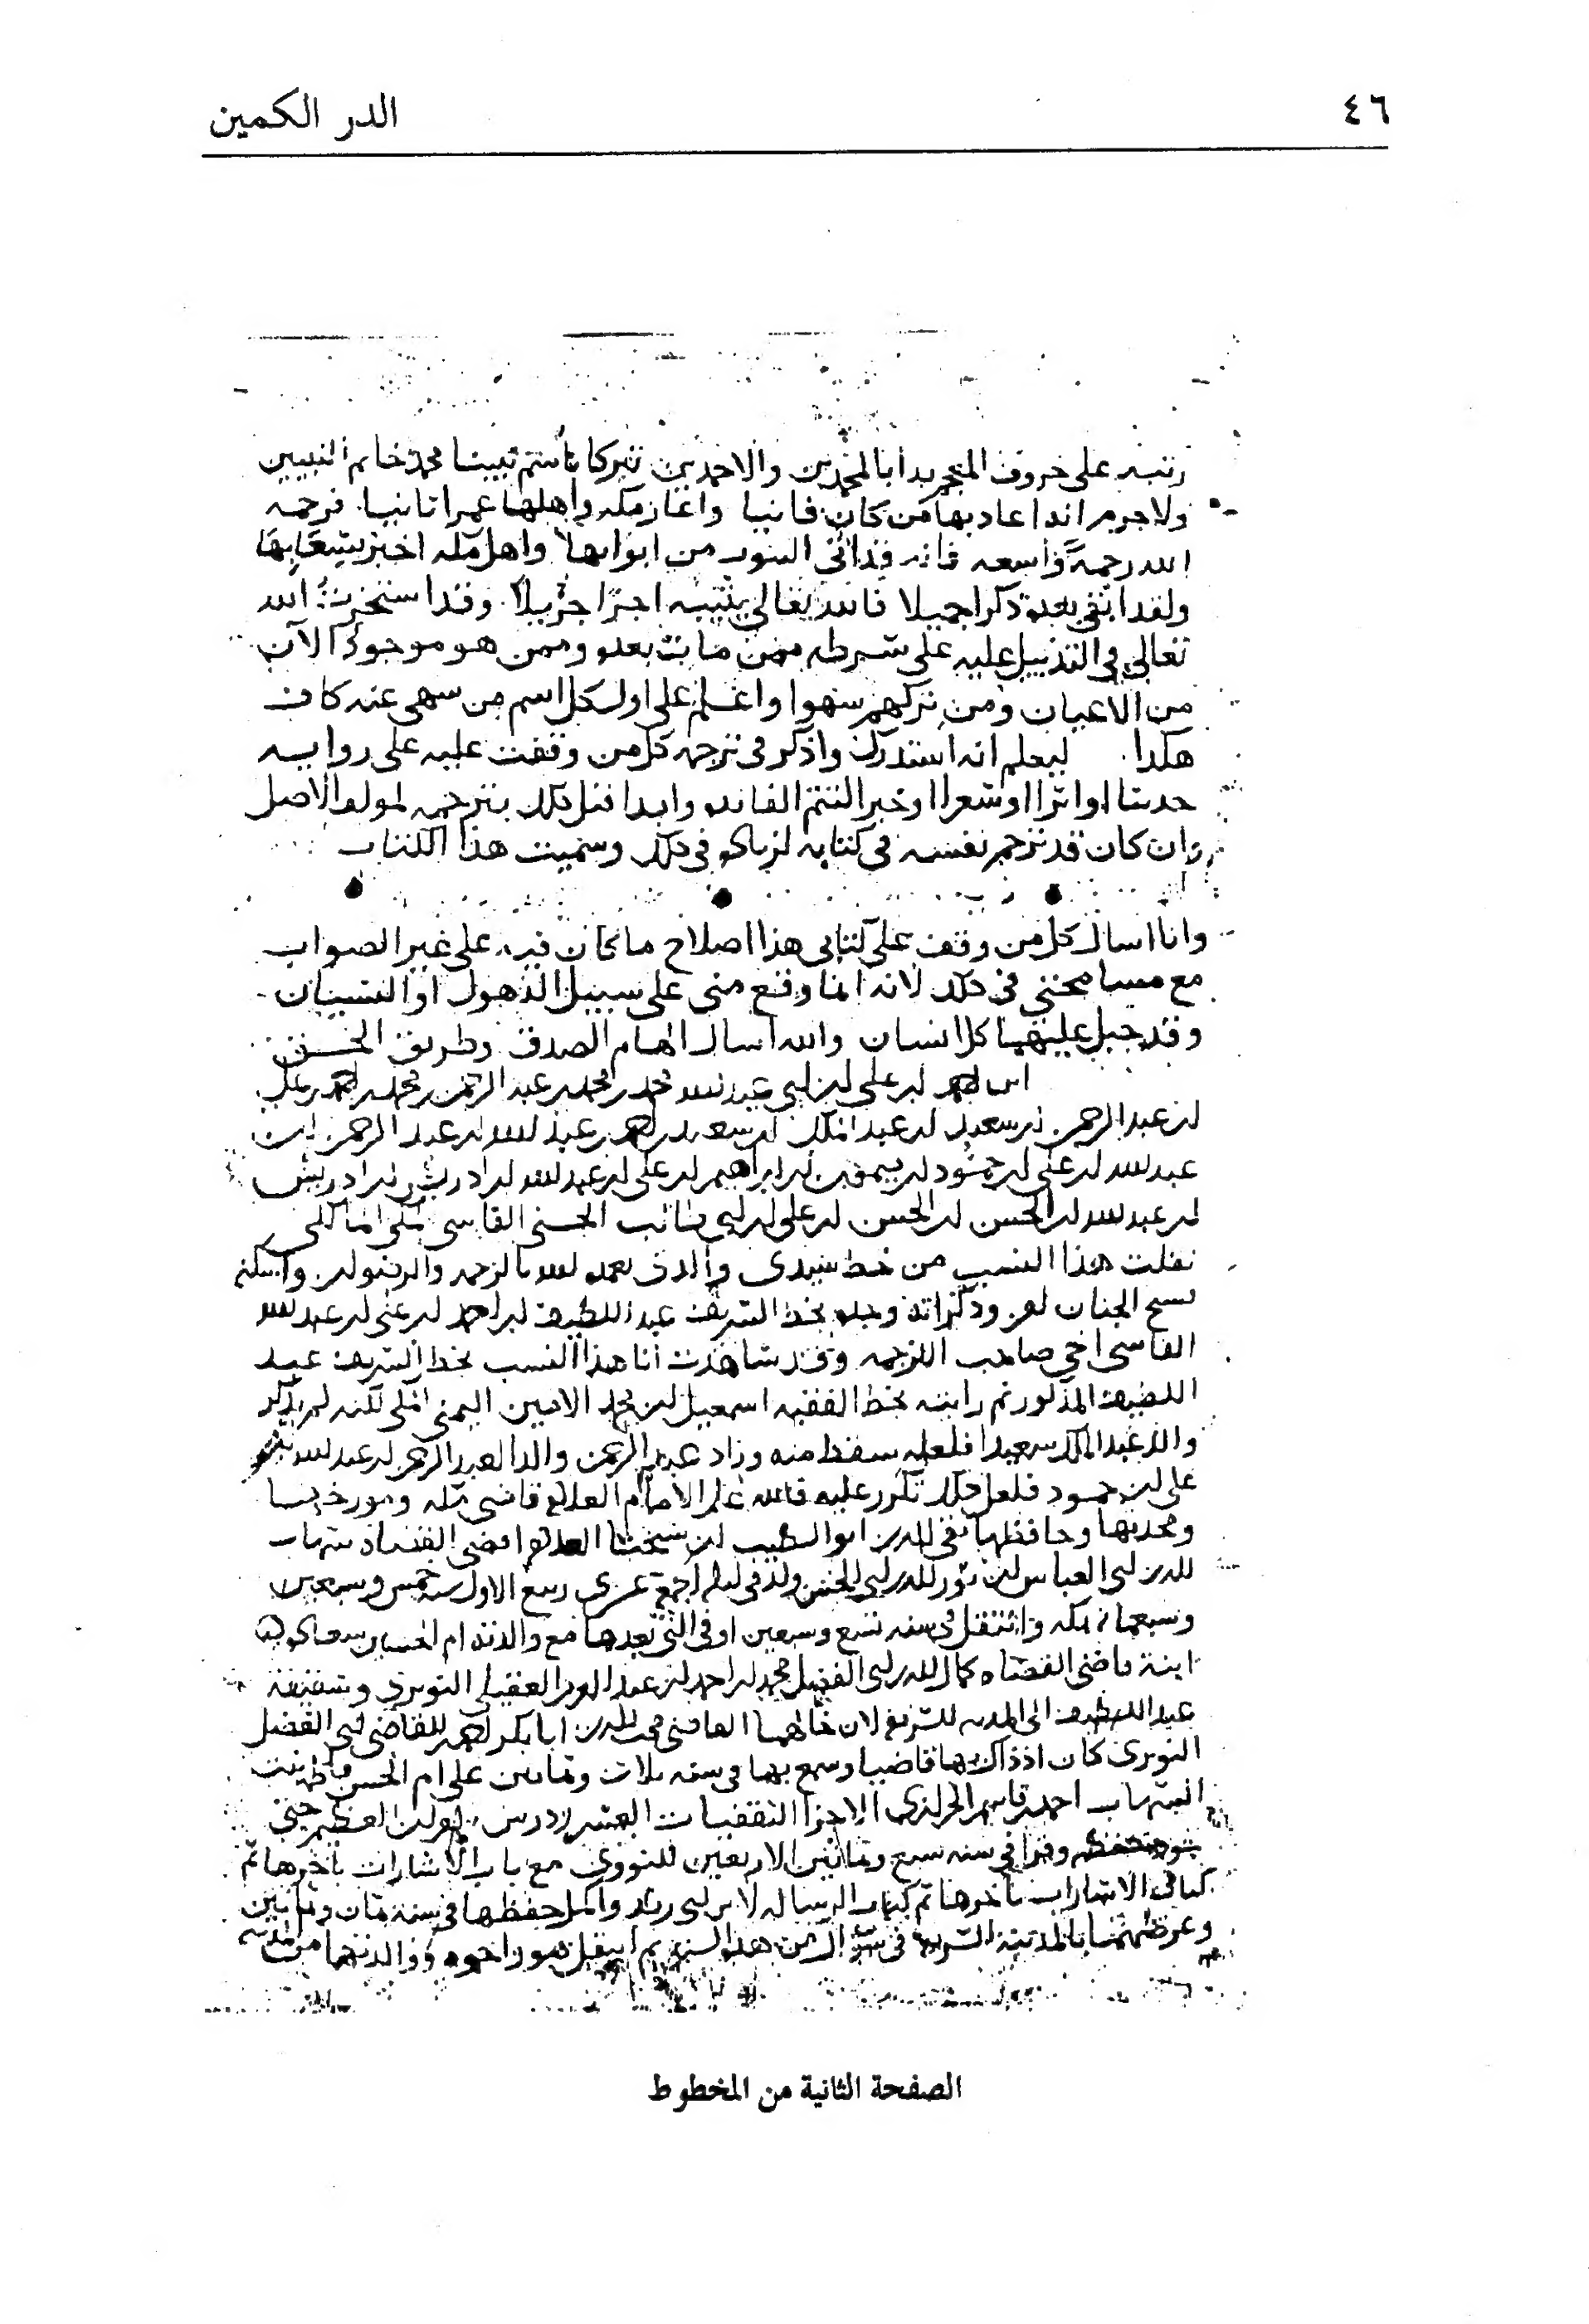 ٤٦
الدر الكمين
رتبه على حروف المعجم بدا بالمحمدين والاحمدين تبركا باسم نبينا محمد خاتم النبيين
ولا جرم انه اعاد بها من كان فانيا واعاز مكه واهلها عمرا ثانيا فرحمه
الله رحمة واسعه فانه قد اتى البيوت من ابوابها واهل مكه اخبر بشعابها
ولقد ابقى بعده ذكرا جميلا فالله تعالى يثيبه اجرا جزيلا وقد استخرت الله
تعالى في التذييل عليه على شرطه ممن مات بعده وممن هو موجود الآن
من الاعيان ومن تركهم سهوا واعلم على اول كل اسم من سهى عنه كاف
هكذا ليعلم انه استدرك واذكر في ترجمه كل من وقفت عليه على روايه
حديثا او اثرا او شعرا او خبرا لتتم الفائده وابدا قبل ذلك بترجمه لمولف الاصل
وان كان قد ترجم نفسه في كتابه لزياده في ذلك وسميت هذا الكتاب
وانا اسال كل من وقف على كتابي هذا اصلاح ما كان فيه على غير الصواب
مع مسامحتي في ذلك لانه انما وقع مني على سبيل الذهول او النسيان
وقد جبل عليهما كل انسان والله اسال الهام الصدق وطريق الحق
احمد بن علي بن ابي عبد الله محمد بن محمد بن عبد الرحمن بن محمد بن احمد بن علي
بن عبد الرحمن بن سعيد بن عبد الملك بن سعيد بن احمد بن عبد الله بن عبد الرحمن ابن
عبد الله بن علي بن حمود بن ميمون بن ابراهيم بن علي بن عبد الله بن ادريس بن ادريس
بن عبد الله بن الحسن بن الحسن بن علي بن ابي طالب الحسني الفاسي المكي المالكي
نقلت هذا النسب من خط سيدي والدي تغمده الله بالرحمه والرضوان واسكنه
فسيح الجنان وذكر انه وجده بخط الشريف عبد اللطيف بن احمد بن علي بن عبد الله
الفاسي اخي صاحب الترجمه وقد شاهدت انا هذا النسب بخط الشريف عبد
اللطيف المذكور ثم رايته بخط الفقيه اسمعيل بن محمد الامين اليمني المكي لكنه لم يذكر
والد عبد الملك سعيدا فلعله سقط منه وزاد عبد الرحمن والدا لعبد الرحمن بن عبد الله بن
علي بن حمود فلعل ذلك تكرر عليه فالله اعلم الامام العلامه قاضي مكه ومورخها
ومحدثها وحافظها تقي الدين ابو الطيب ابن شيخنا العلامه اقضى القضاه شهاب
الدين ابي العباس بن نور الدين ابي الحسن ولد في ليله الجمعه ربيع الاول سنه خمس وسبعين
وسبعمائه بمكه وانتقل في سنه تسع وسبعين او في التي بعدها مع والدته ام الحسين
ابنة قاضي القضاه كمال الدين ابي الفضل محمد بن احمد بن عبد العزيز العقيلي النويري وشقيقه
عبد اللطيف الى المدينه الشريفه لان خالهما القاضي محب الدين ابا بكر احمد بن القاضي ابي الفضل
النويري كان اذ ذاك بها قاضيا وسمع بها في سنه ثلاث وثمانين على ام الحسن فاطمه بنت
الشهاب احمد بن قاسم الحرازي الاجزا الثقفيات العشره ودرس القران العظيم حتى
جود حفظه وقرا في سنه سبع وثمانين الاربعين للنووي مع باب الاشارات باخرها ثم
كتاب الرساله لابن ابي زيد واكمل حفظها في سنه ثمان وثمانين
وعرضهما بالمدينه الشريفه في ثم انتقل هو واخوه ووالدتهما من المدينه
الصفحة الثانية من المخطوط